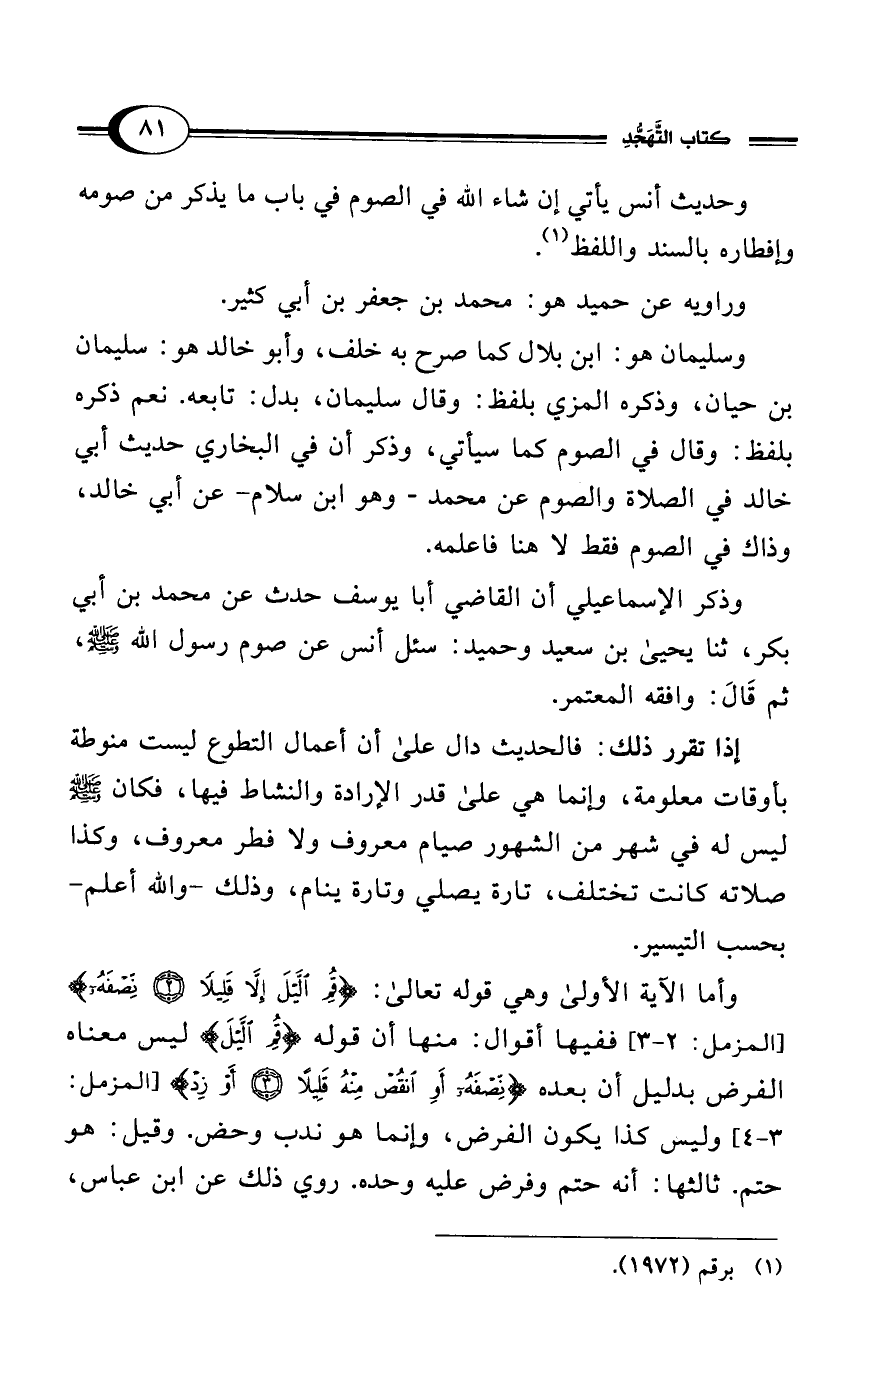 كتاب التَّهَجُّدِ
٨١
وحديث أنس يأتي إن شاء الله في الصوم في باب ما يذكر من صومه
وإفطاره بالسند واللفظ(١).
وراويه عن حميد هو: محمد بن جعفر بن أبي كثير.
وسليمان هو: ابن بلال كما صرح به خلف، وأبو خالد هو: سليمان
بن حيان، وذكره المزي بلفظ: وقال سليمان، بدل: تابعه. نعم ذكره
بلفظ: وقال في الصوم كما سيأتي، وذكر أن في البخاري حديث أبي
خالد في الصلاة والصوم عن محمد - وهو ابن سلام- عن أبي خالد،
وذاك في الصوم فقط لا هنا فاعلمه.
وذكر الإسماعيلي أن القاضي أبا يوسف حدث عن محمد بن أبي
بكر، ثنا يحيىٰ بن سعيد وحميد: سئل أنس عن صوم رسول الله ﷺ،
ثم قَالَ: وافقه المعتمر.
إذا تقرر ذلك: فالحديث دال علىٰ أن أعمال التطوع ليست منوطة
بأوقات معلومة، وإنما هي علىٰ قدر الإرادة والنشاط فيها، فكان ﷺ
ليس له في شهر من الشهور صيام معروف ولا فطر معروف، وكذا
صلاته كانت تختلف، تارة يصلي وتارة ينام، وذلك -والله أعلم-
بحسب التيسير.
وأما الآية الأولىٰ وهي قوله تعالىٰ: ﴿قُمِ ٱلَّيۡلَ إِلَّا قَلِيلٗا ۝٢ نِّصۡفَهُۥٓ﴾
[المزمل: ٢-٣] ففيها أقوال: منها أن قوله ﴿قُمِ ٱلَّيۡلَ﴾ ليس معناه
الفرض بدليل أن بعده ﴿نِّصۡفَهُۥٓ أَوِ ٱنقُصۡ مِنۡهُ قَلِيلًا ۝٣ أَوۡ زِدۡ﴾ [المزمل:
٣-٤] وليس كذا يكون الفرض، وإنما هو ندب وحض. وقيل: هو
حتم. ثالثها: أنه حتم وفرض عليه وحده. روي ذلك عن ابن عباس،
(١) برقم (١٩٧٢).